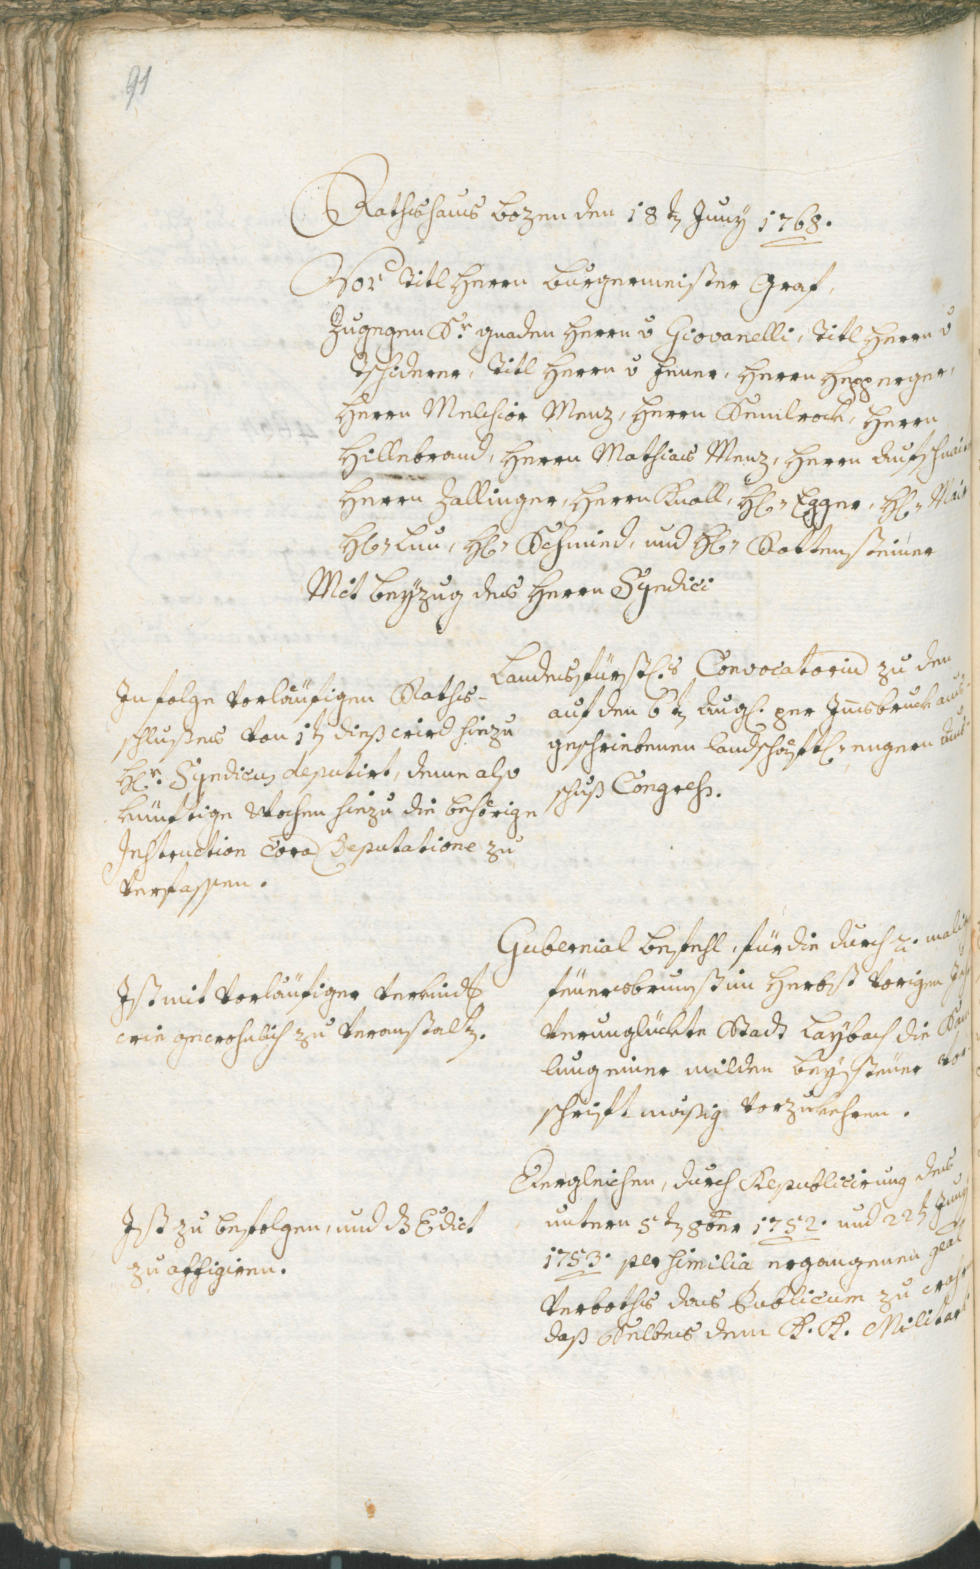 91
Rathshaus Bozen den 18ten Juny 1768.
Vor Titl Herrn Burgermeister Graf,
Zugegen Sr. gnaden Herrn v Giovanelli, Titl Herrn v
Tschiderer, Titl Herrn v Hener, Herrn Hepperger,
Herrn Melchior Menz, Herrn Kemlrock, Herrn
Hillebrand, Herrn Mathias Menz, Herrn Aufschnait
Herrn Zallinger, Herrn Knoll, Hl: Egger, Hl: Mair
Hl: Lun, Hl: Schmied, und Hl: Rottensteiner
Mit Beyzug des Herrn Syndici
Landesfürstl.s Convocatorium zu dem
auf den 6ten Augl. per Innsbruck aus-
geschriebenen Landschäftl: engern Aus-
schuß Congress.
In folge vorläufigen Raths-
schlußes von 1ten dieß wird hiezu
Hr. Syndicus deputirt, deme also
künftige Wochen hiezu die behörige
Instruction Cora Deputatione zu
verfassen.
Gubernial Befehl, für die durch 2. malige
feuersbrunst im Herbst vorigen
verunglückte Stadt Laybach die
lung einer milden Beysteuer vor-
schriftmäßig vorzukehren.
Ist mit vorläufiger
wie gewohnlich zu veranstalten.
Dergleichen, durch Republicirung des
untern 5ten 8ber 1752. und 22ten Juny
1753. per similia ergangenen
Verboths das Publicum zu
daß Selbes dem K. K. Militar
Ist zu befolgen, und das Edict
zu affigiren.